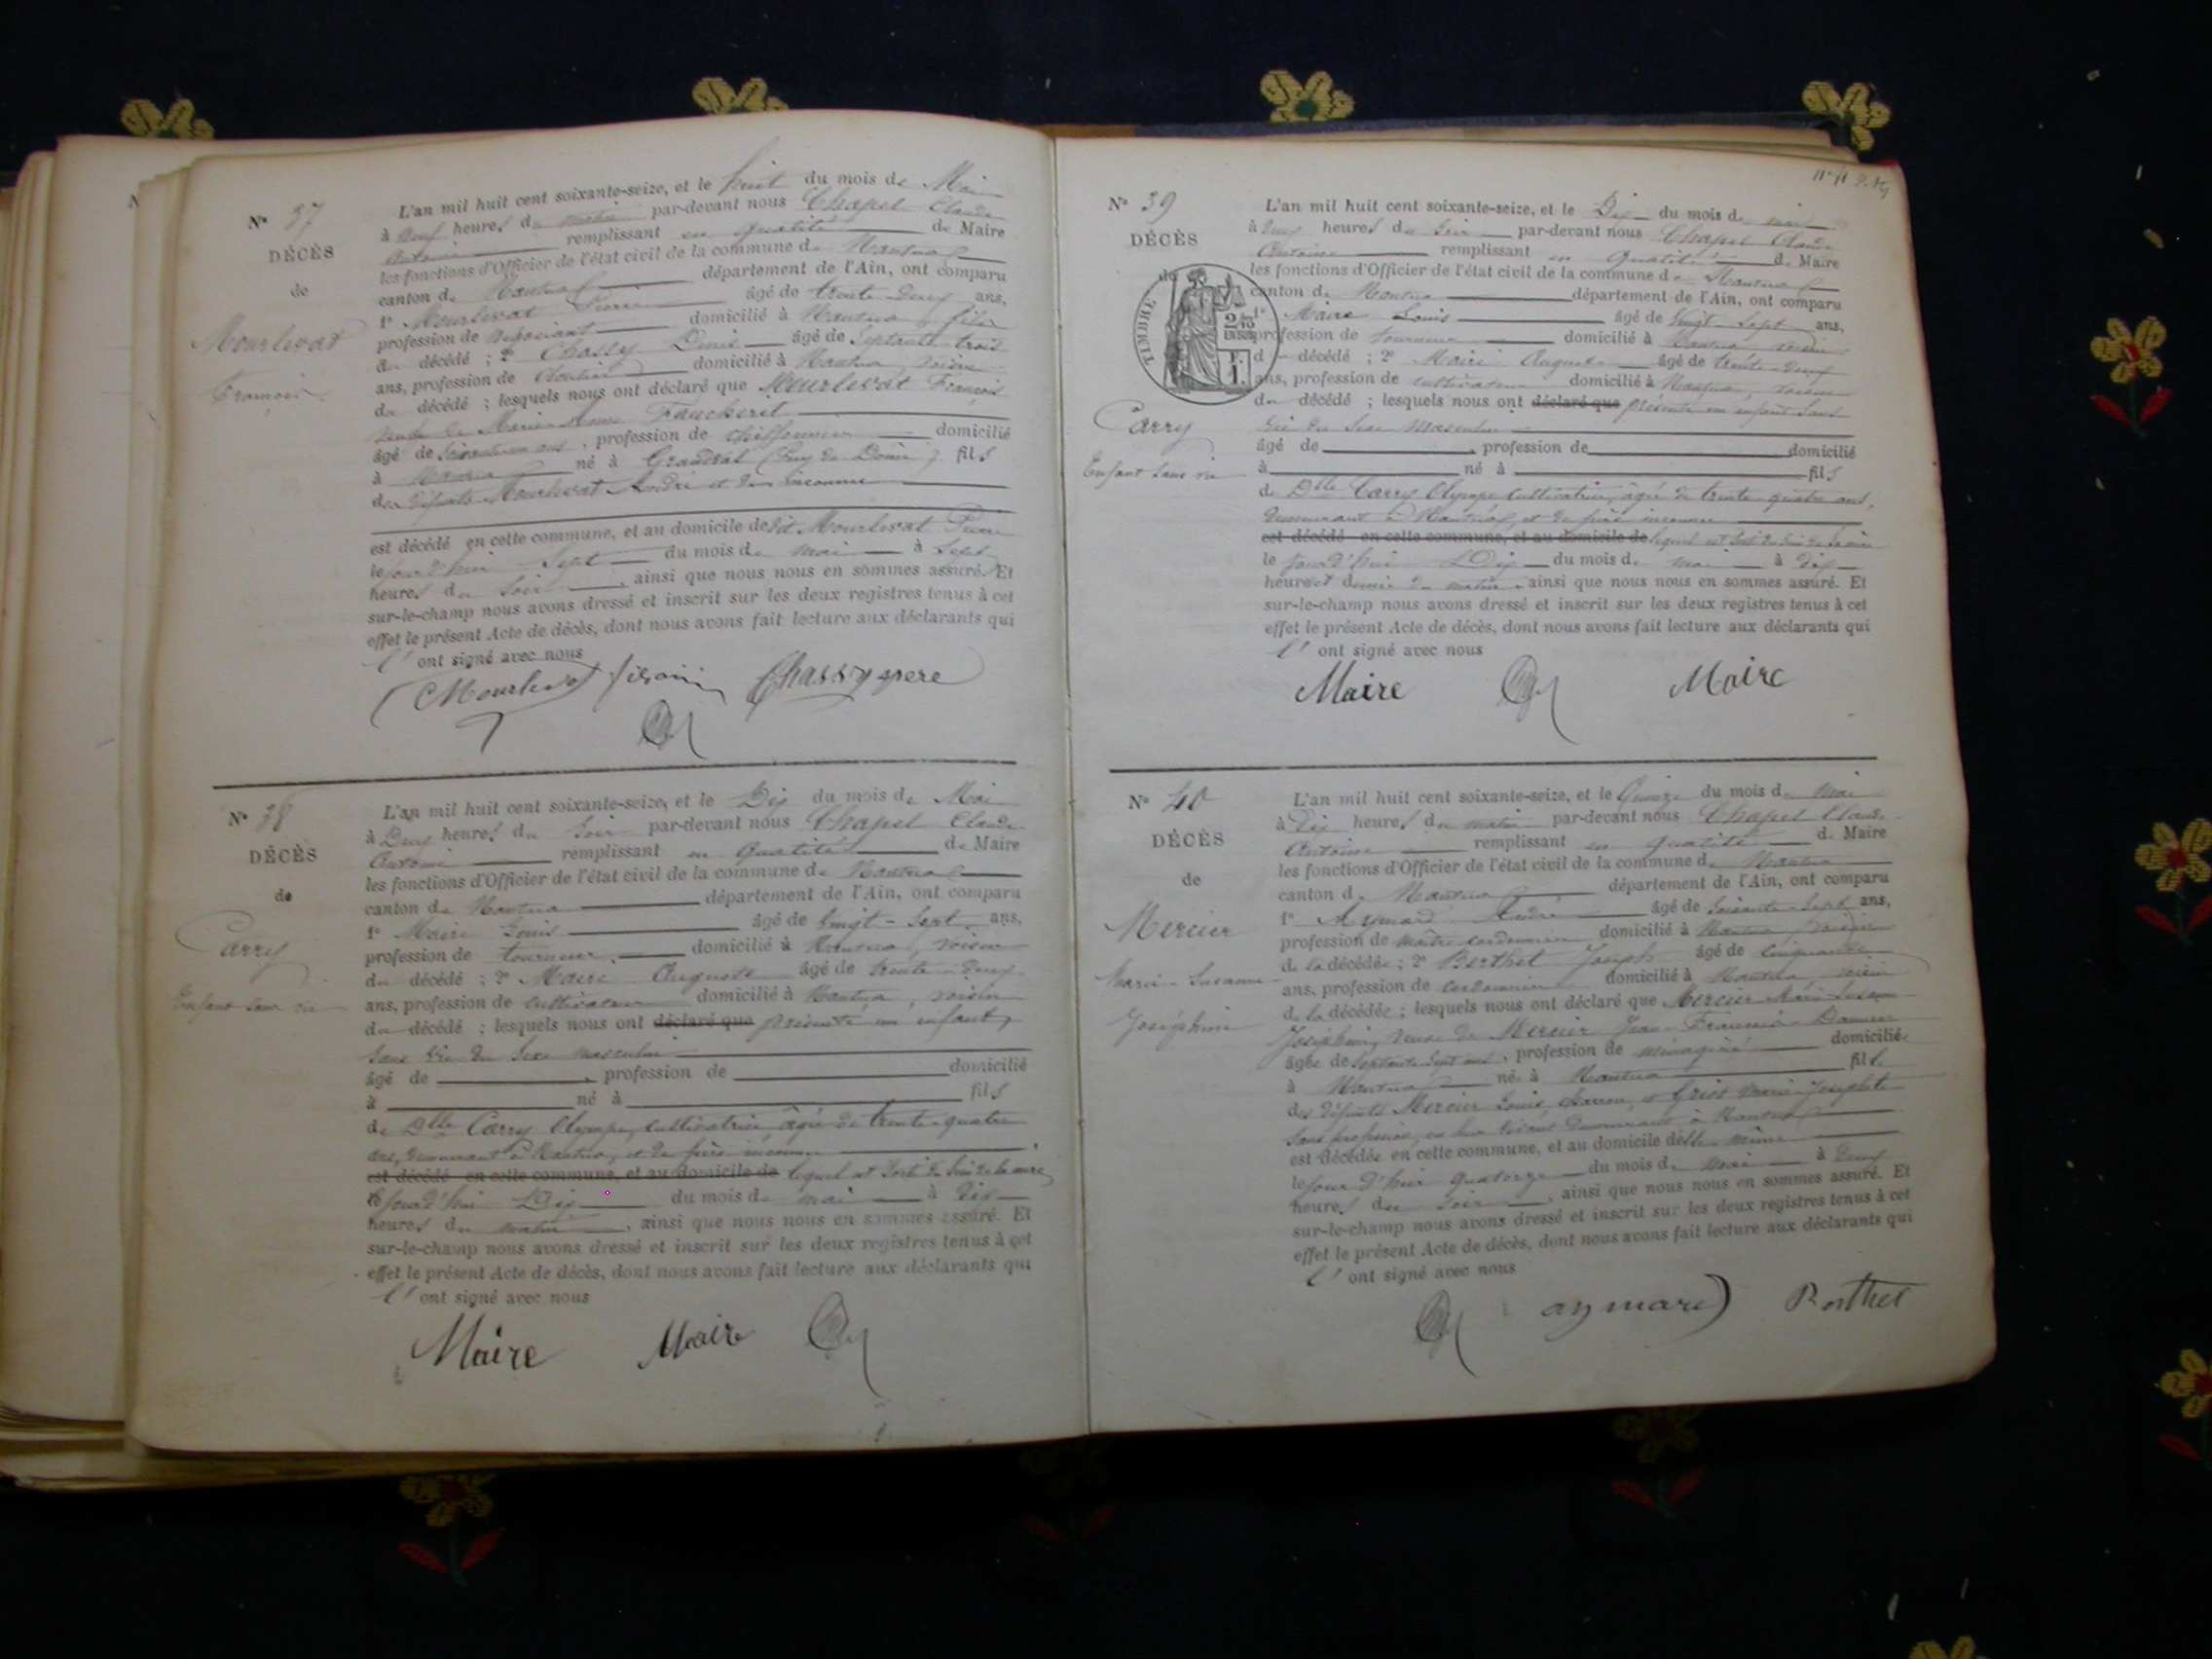 N° 37
DÉCÈS
de
Mourlevat
François
L'an mil huit cent soixante-seize, et le huit du mois de Mai
à neuf heures du matin par-devant nous Chapel Claude
Antoine remplissant en qualité de Maire
les fonctions d'Officier de l'état civil de la commune de Nantua
canton de Nantua département de l'Ain, ont comparu
1° Mourlevat Pierre âgé de trente-deux ans,
profession de négociant domicilié à Nantua, fils
du décédé ; 2° Chassy Denis âgé de Septante trois
ans, profession de domicilié à Nantua, voisin
du décédé ; lesquels nous ont déclaré que Mourlevat François
veuf de Marie Anne Faucheret
âgé de ans, profession de chiffonnier domicilié
à Nantua né à Grandval (Puy de Dôme) fils
des défunts Mourlevat André et de inconnue
est décédé en cette commune, et au domicile de dit Mourlevat Pierre
le jour d'hier Sept du mois de mai à Sept
heures du soir, ainsi que nous nous en sommes assuré. Et
sur-le-champ nous avons dressé et inscrit sur les deux registres tenus à cet
effet le présent Acte de décès, dont nous avons fait lecture aux déclarants qui
l' ont signé avec nous
Mourlevat Chassy pere
N° 38
DÉCÈS
de
Carry
Enfant sans vie
L'an mil huit cent soixante-seize, et le Dix du mois de Mai
à Deux heures du soir par-devant nous Chapel Claude
Antoine remplissant en qualité de Maire
les fonctions d'Officier de l'état civil de la commune de Nantua
canton de Nantua département de l'Ain, ont comparu
1° Maire Louis âgé de vingt-sept ans,
profession de tourneur domicilié à Nantua, voisin
du décédé ; 2° Maire Auguste âgé de trente-deux
ans, profession de cultivateur domicilié à Nantua, voisin
du décédé ; lesquels nous ont déclaré que présenté un enfant
sans vie du sexe masculin
âgé de , profession de domicilié
à né à fils
de Dlle Carry Olympe, cultivatrice, âgée de trente-quatre
ans, demeurant à Nantua, et de père inconnu
est décédé en cette commune, et au domicile de lequel est sorti du sein de la mère
le jour d'hui Dix du mois de mai à dix
heures du matin, ainsi que nous nous en sommes assuré. Et
sur-le-champ nous avons dressé et inscrit sur les deux registres tenus à cet
effet le présent Acte de décès, dont nous avons fait lecture aux déclarants qui
l' ont signé avec nous
Maire Maire
N° 39
DÉCÈS
de
TIMBRE
Carry
Enfant sans vie
L'an mil huit cent soixante-seize, et le Dix du mois de mai
à deux heures du soir par-devant nous Chapel Claude
Antoine remplissant en qualité de Maire
les fonctions d'Officier de l'état civil de la commune de Nantua
canton de Nantua département de l'Ain, ont comparu
1° Maire Louis âgé de vingt-sept ans,
profession de tourneur domicilié à Nantua voisin
du décédé ; 2° Maire Auguste âgé de trente-deux
ans, profession de cultivateur domicilié à Nantua, voisin
du décédé ; lesquels nous ont déclaré que présenté un enfant sans
vie du sexe masculin
âgé de , profession de domicilié
à né à fils
de Dlle Carry Olympe cultivatrice, âgée de trente-quatre ans,
demeurant à Nantua, et de père inconnu
est décédé en cette commune, et au domicile de lequel est sorti du sein de la mère
le jour d'hui Dix du mois de mai à dix
heures et demie du matin, ainsi que nous nous en sommes assuré. Et
sur-le-champ nous avons dressé et inscrit sur les deux registres tenus à cet
effet le présent Acte de décès, dont nous avons fait lecture aux déclarants qui
l' ont signé avec nous
Maire Maire
N° 40
DÉCÈS
de
Mercier
Marie-Susanne
Joséphine
L'an mil huit cent soixante-seize, et le Quinze du mois de mai
à Dix heures du matin par-devant nous Chapel Claude
Antoine remplissant en qualité de Maire
les fonctions d'Officier de l'état civil de la commune de Nantua
canton de Nantua département de l'Ain, ont comparu
1° Aymard André âgé de soixante-sept ans,
profession de maître cordonnier domicilié à Nantua voisin
de la décédée ; 2° Berthet Joseph âgé de cinquante
ans, profession de cordonnier domicilié à Nantua, voisin
de la décédée ; lesquels nous ont déclaré que Mercier Marie Susanne
Joséphine, veuve de Mercier Jean-François
âgée de septante sept ans, profession de ménagère domiciliée
à Nantua née à Nantua fille
des défunts Mercier Louis, et Griot Marie Josephte
sans profession, en leur vivant demeurant à Nantua
est décédée en cette commune, et au domicile d'elle même
le jour d'hier quatorze du mois de mai à deux
heures du soir, ainsi que nous nous en sommes assuré. Et
sur-le-champ nous avons dressé et inscrit sur les deux registres tenus à cet
effet le présent Acte de décès, dont nous avons fait lecture aux déclarants qui
l' ont signé avec nous
aymard Berthet